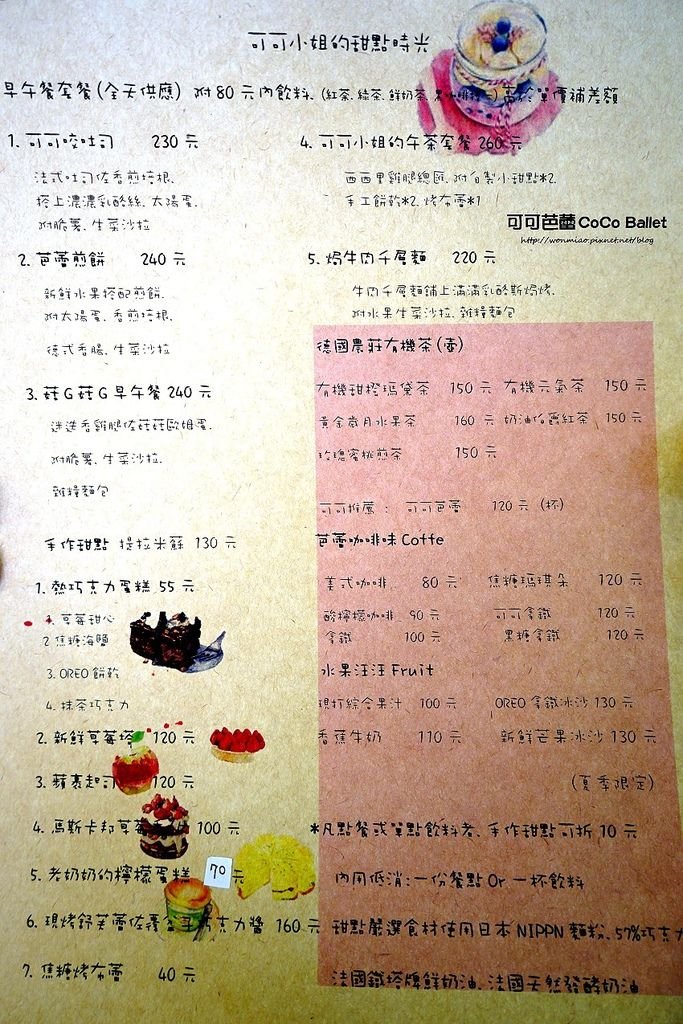 可可小姐的甜點時光
早午餐套餐(全天供應) 附80元內飲料、(紅茶、綠茶、鮮奶茶、黑咖啡擇一) 高於單價補差額
1. 可可咬吐司 230元
法式吐司佐香煎培根、
搭上濃濃乳酪絲、太陽蛋、
附脆薯、生菜沙拉
2. 芭蕾煎餅 240元
新鮮水果搭配煎餅、
附太陽蛋、香煎培根、
德式香腸、生菜沙拉
3. 菇G菇G早午餐 240元
迷迭香雞腿佐菇菇歐姆蛋、
附脆薯、生菜沙拉、
雜糧麵包
4. 可可小姐的午茶套餐 260元
西西里雞腿總匯、附自製小甜點*2、
手工餅乾*2、烤布蕾*1
可可芭蕾CoCo Ballet
http://wonmiao.pixnet.net/blog
5. 焗牛肉千層麵 220元
牛肉千層麵鋪上滿滿乳酪斯焗烤、
附水果生菜沙拉、雜糧麵包
手作甜點 提拉米蘇 130元
1. 熱巧克力蛋糕 55元
1. 草莓甜心
2 焦糖海鹽
3. OREO 餅乾
4. 抹茶巧克力
2. 新鮮草莓塔 120元
3. 蘋裹起司 120元
4. 馬斯卡邦草莓 100元
5. 老奶奶的檸檬蛋糕 70元
6. 現烤舒芙蕾佐覆盆子巧克力醬 160元
7. 焦糖烤布蕾 40元
德國農莊有機茶(壺)
有機甜橙瑪黛茶 150元 有機元氣茶 150元
黃金歲月水果茶 160元 奶油伯爵紅茶 150元
玫瑰蜜桃煎茶 150元
可可推薦: 可可芭蕾 120元 (杯)
芭蕾咖啡味Coffe
美式咖啡 80元 焦糖瑪琪朵 120元
酸檸檬咖啡 90元 可可拿鐵 120元
拿鐵 100元 黑糖拿鐵 120元
水果汪汪Fruit
現打綜合果汁 100元 OREO拿鐵冰沙 130元
香蕉牛奶 110元 新鮮芒果冰沙 130元
(夏季限定)
*凡點餐或單點飲料者、手作甜點可折10元
內用低消:一份餐點Or一杯飲料
甜點嚴選食材使用日本NIPPN麵粉、57%巧克力
法國鐵塔牌鮮奶油、法國天然發酵奶油